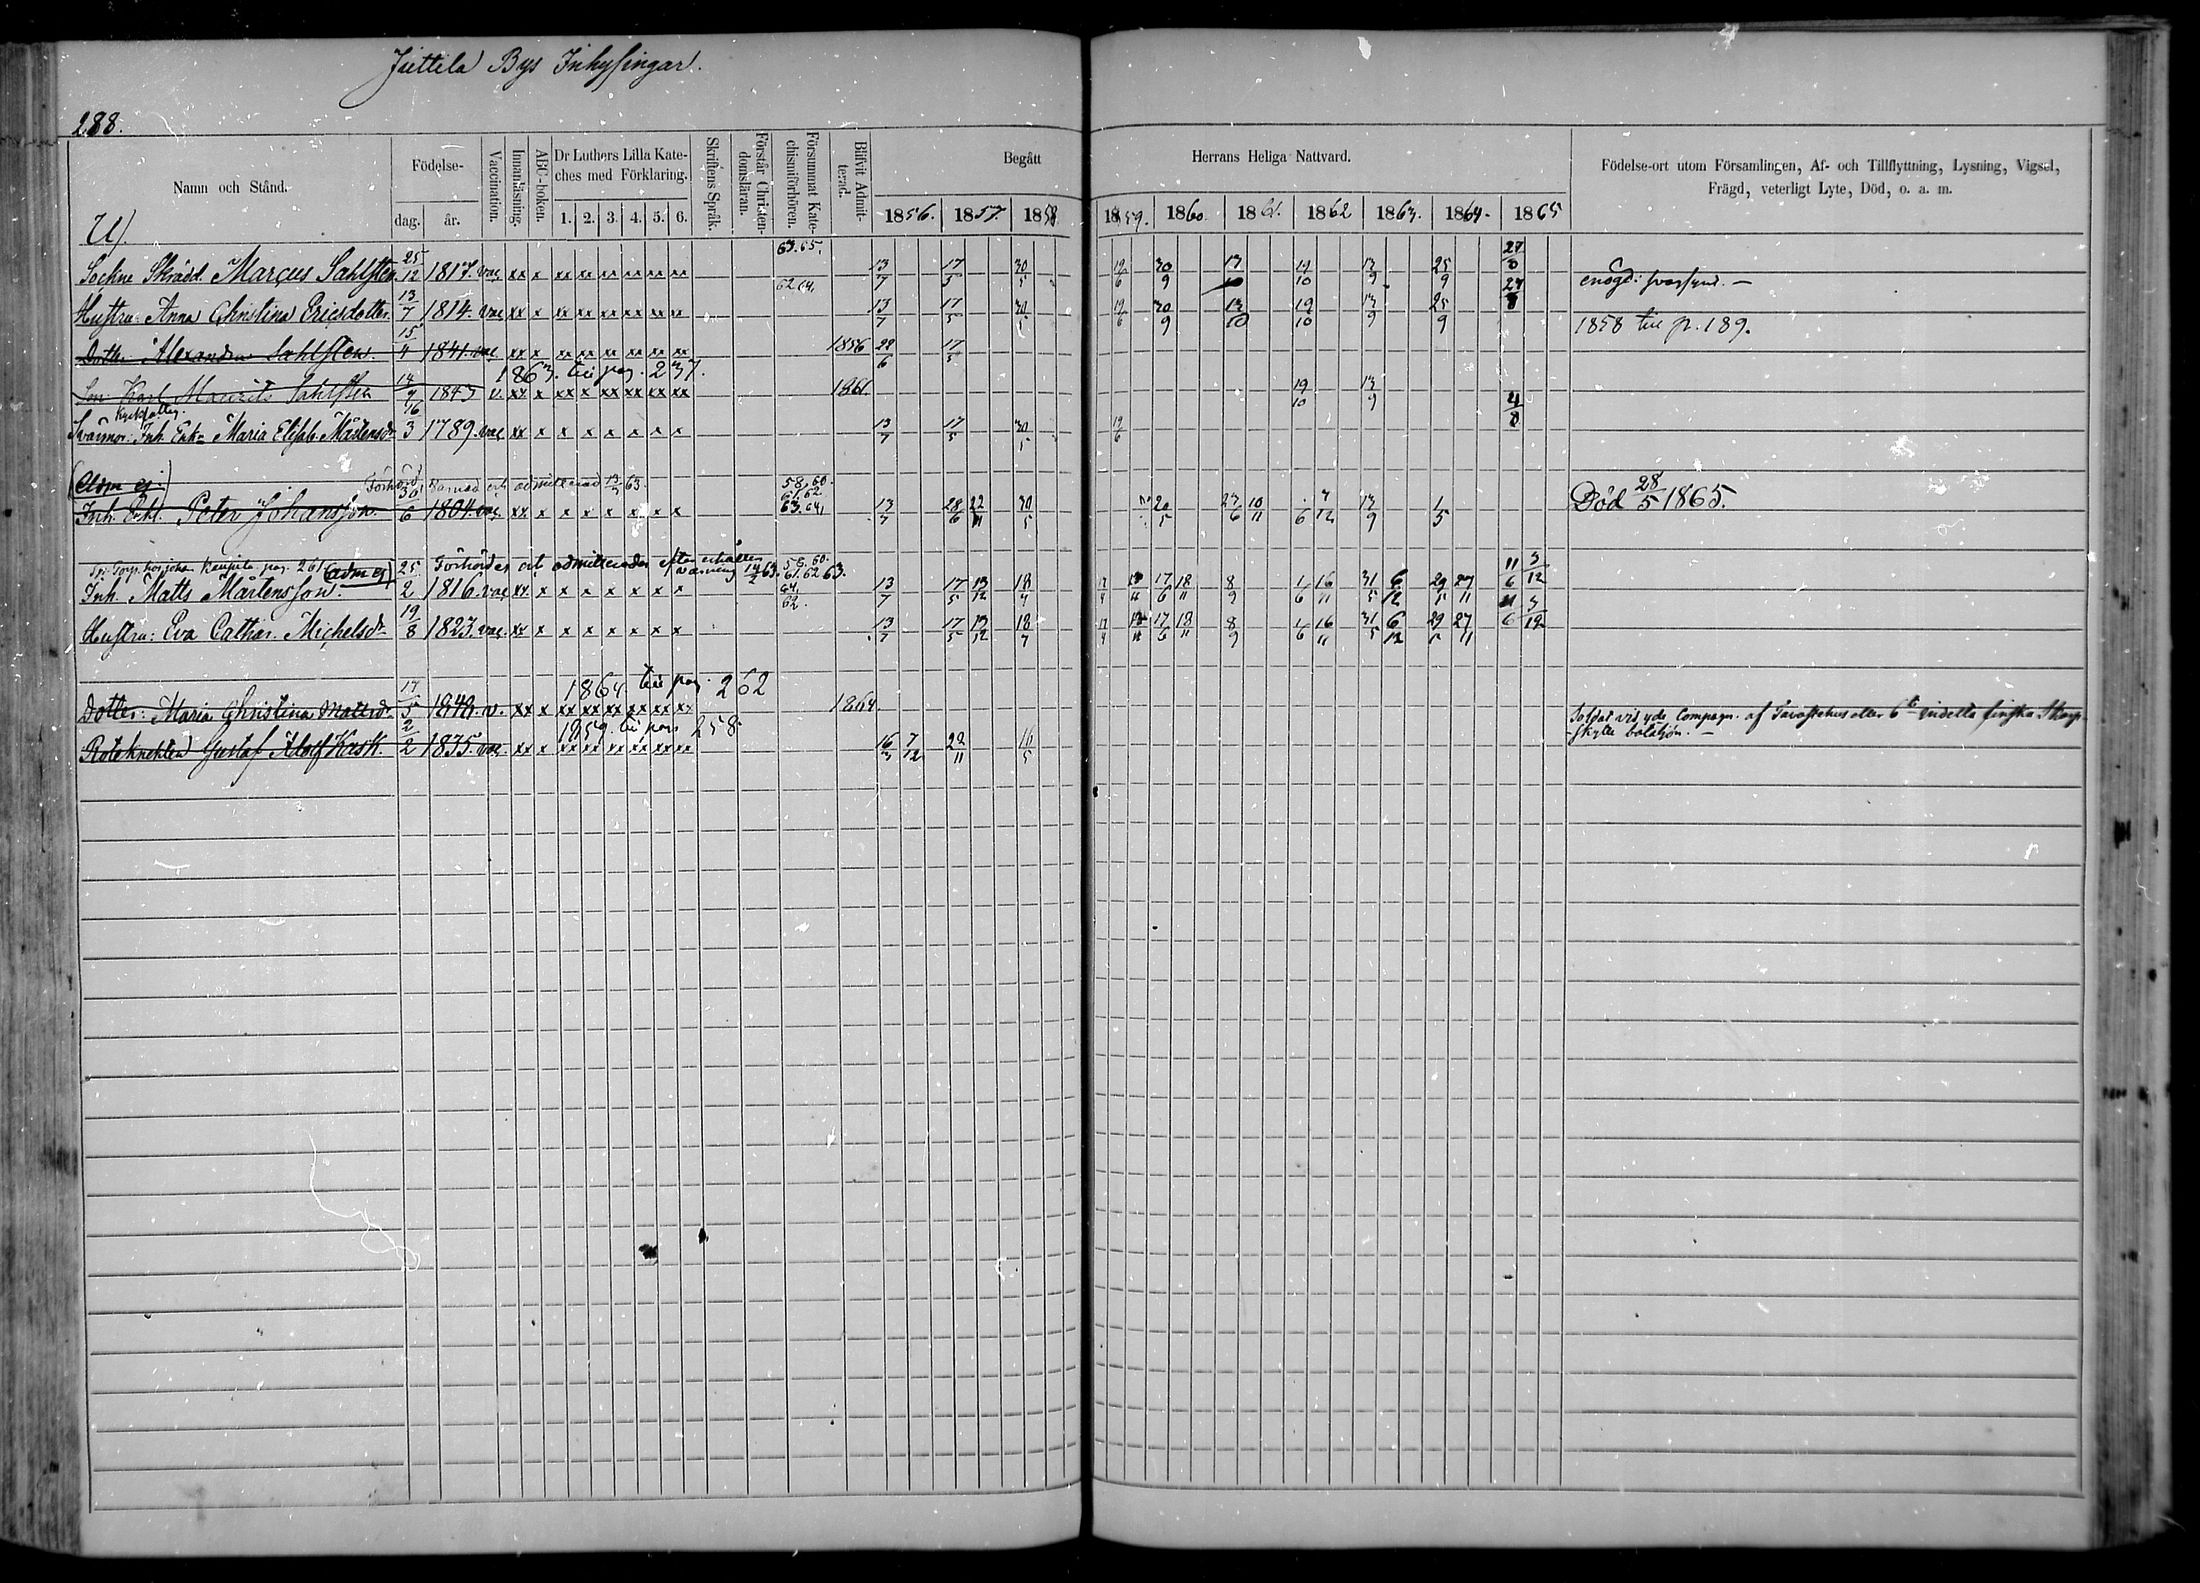 Juttila Bys Inhysingar.
288.
Namn och Stånd.
Födelse-
dag. år.
Vaccination.
Innanläsning.
ABC-boken.
Dr Luthers Lilla Kate-
ches med Förklaring.
1. 2. 3. 4. 5. 6.
Skriftens Språk.
Förstår Christen-
domsläran.
Försummat Kate-
chismiförhören.
Blifvit Admit-
terad.
Begått Herrans Heliga Nattvard.
1856. 1857. 1858 1859. 1860. 1861. 1862 1863. 1864. 1865
Födelse-ort utom Församlingen, Af- och Tillflyttning, Lysning, Vigsel,
Frägd, veterligt Lyte, Död, o. a. m.
63. 65.
Sockne Skrädd. Marcus Sahlsten 25/12 1817. vac xx x xx xx xx xx xx xx 13/7 17/5 30/5 19/6 30/9 13/10 19/10 13/9 25/9 27/8 enögd: svagsynt. —
62. 64.
Hustru: Anna Christina Ericsdotter 13/7 1814. vac xx x xx xx xx xx xx xx 13/7 17/5 30/5 19/6 30/9 13/10 19/10 13/9 25/9 27/8
Dotter Alexandra Sahlsten. 15/4 1841. vac xx x xx xx xx xx xx xx 1856 22/6 17/5 1858 till p. 189.
1863. till pag. 237.
Son Karl Maurits Sahlsten 14/9 1843 v. xx x xx xx xx xx xx xx 1861. 19/10 13/9
Svärmor: Inh. Enk= Maria Elisab. Mårtensdr 16/3 1789. vac xx x x x x x x x 13/7 17/5 30/5 19/6 4/8
(Adm ej:) Förhörd Varnad och admitterad 13/3 63. 58, 60. 61. 62.
Inh. Enkl. Peter Johansson 30/6 1804. vac xx x x x x x x x 63. 64, 13/7 28/6 22/11 30/5 20/5 23/6 10/11 13/9 1/5 Död 28/5 1865.
pag. 261 (adm ej) Förhördes och admitterades efter erhållen varning 14/2 63. 58. 60. 61. 62 63.
Inh. Matts Mårtensson 25/2 1816. vac xx x x x x x x x 64. 13/7 17/5 13/12 18/7 17/6 18/11 8/9 1/6 16/11 31/5 6/12 29/5 27/11 11/6 3/12
62.
Hustru: Eva Cathar. Michelsdr 19/8 1823. vac xx x x x x x x x 13/7 17/5 13/12 18/7 17/6 18/11 8/9 1/6 16/11 31/5 6/12 29/5 27/11 11/6 3/12
1864. till pag. 262
Dotter: Maria Christina Mattsdr 17/5 1848. v. xx x xx xx xx xx xx xx 1864
1859. till pag 258.
Roteknekten Gustaf Adolf Kask 2/2 1835. vac xx x xx xx xx xx xx xx 16/3 7/12 22/11 16/5 Soldat vid 4de Compagn. af Tavastehus eller 6te indelta finska Skarp-
skytte bataljon. —